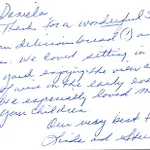 Daniela
Thank for a wonderful
delicious breast(!) a
We loved sitting in
yard, enjoying the view a
of wine in the early eve
We especially loved m
your children.
Our very best
Linda and